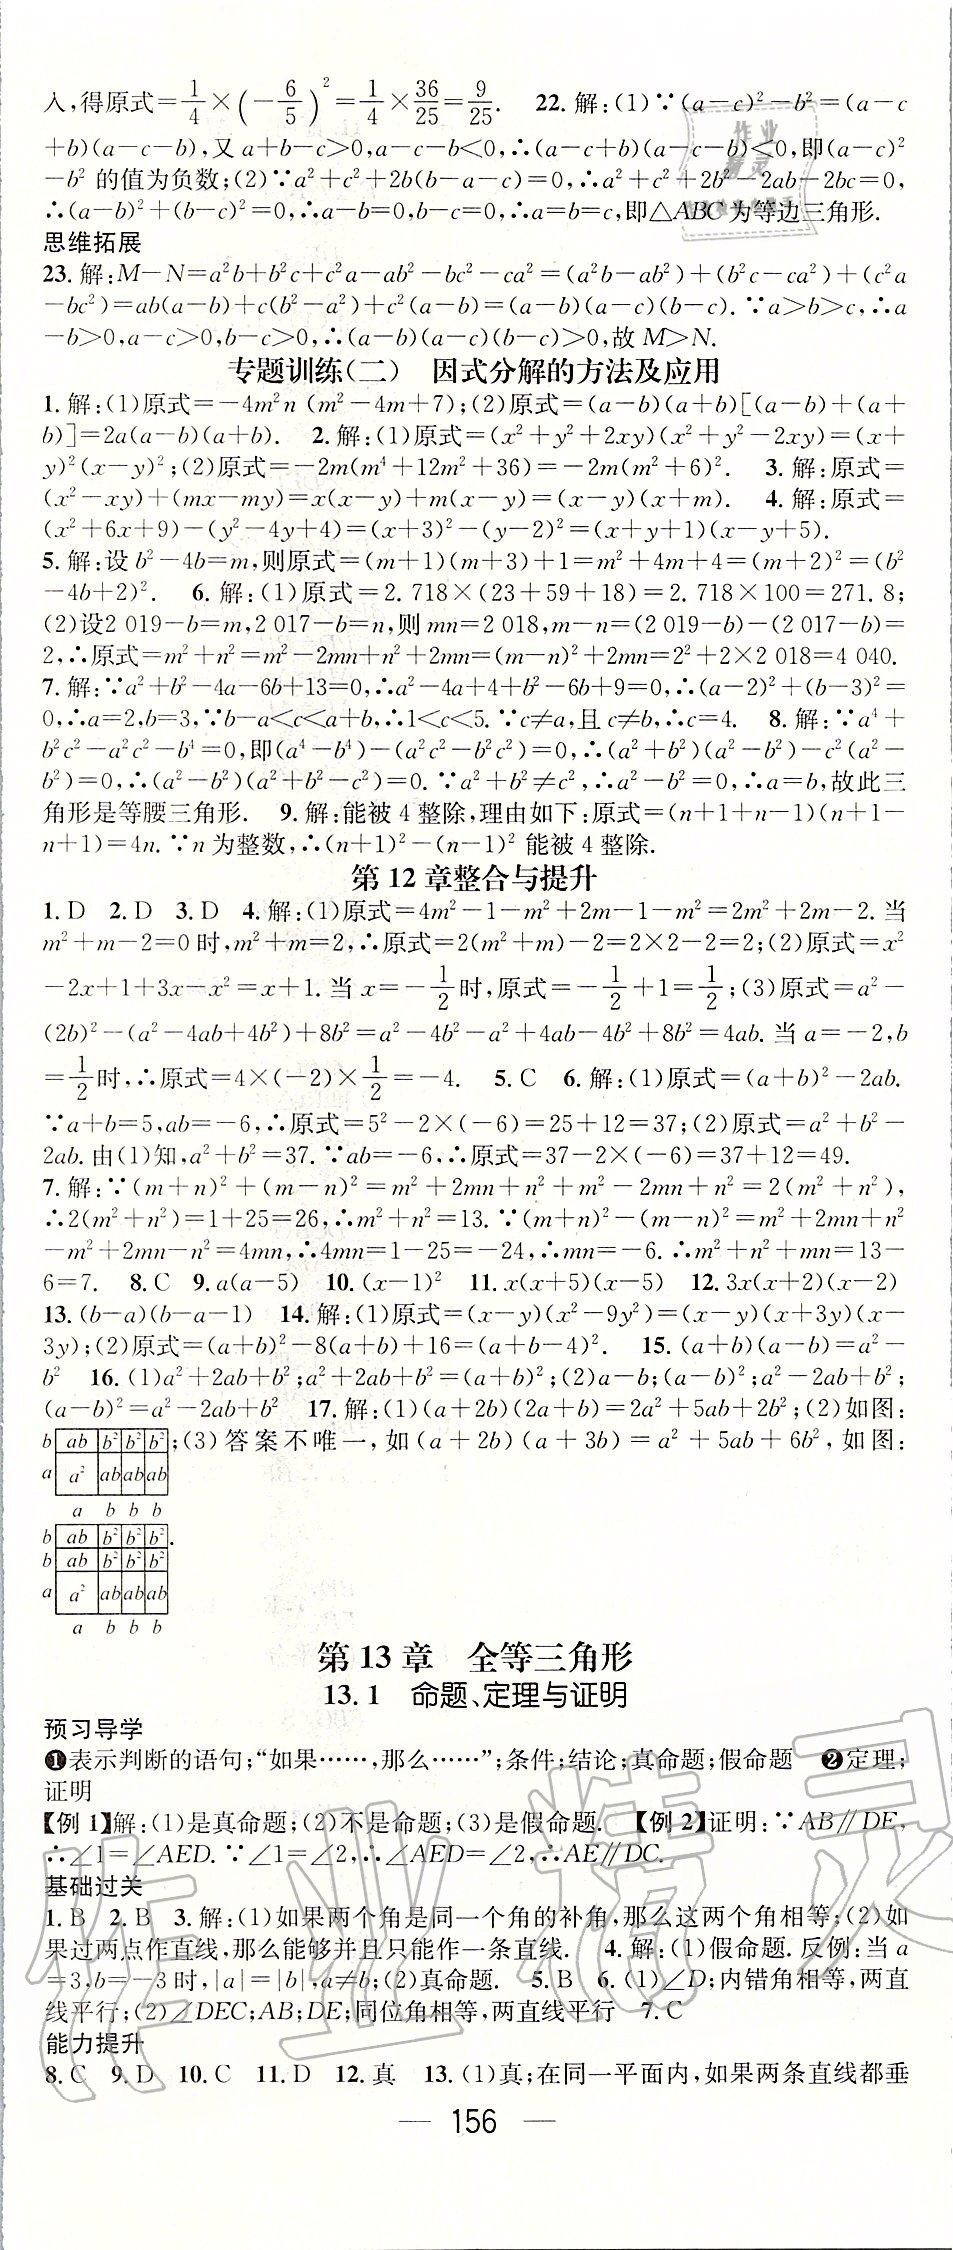 入,得原式=1/4×(-6/5)²=1/4×36/25=9/25. 22.解:(1)∵(a-c)²-b²=(a-c
+b)(a-c-b),又a+b-c>0,a-c-b<0,∴(a-c+b)(a-c-b)<0,即(a-c)²
-b²的值为负数;(2)∵a²+c²+2b(b-a-c)=0,∴a²+c²+2b²-2ab-2bc=0,
∴(a-b)²+(b-c)²=0,∴a-b=0,b-c=0,∴a=b=c,即△ABC为等边三角形.
思维拓展
23.解:M-N=a²b+b²c+c²a-ab²-bc²-ca²=(a²b-ab²)+(b²c-ca²)+(c²a
-bc²)=ab(a-b)+c(b²-a²)+c²(a-b)=(a-b)(a-c)(b-c).∵a>b>c,∴a
-b>0,a-c>0,b-c>0,∴(a-b)(a-c)(b-c)>0,故M>N.
专题训练(二) 因式分解的方法及应用
1.解:(1)原式=-4m²n(m²-4m+7);(2)原式=(a-b)(a+b)[(a-b)+(a+
b)]=2a(a-b)(a+b). 2.解:(1)原式=(x²+y²+2xy)(x²+y²-2xy)=(x+
y)²(x-y)²;(2)原式=-2m(m⁴+12m²+36)=-2m(m²+6)². 3.解:原式=
(x²-xy)+(mx-my)=x(x-y)+m(x-y)=(x-y)(x+m). 4.解:原式=
(x²+6x+9)-(y²-4y+4)=(x+3)²-(y-2)²=(x+y+1)(x-y+5).
5.解:设b²-4b=m,则原式=(m+1)(m+3)+1=m²+4m+4=(m+2)²=(b²
-4b+2)². 6.解:(1)原式=2.718×(23+59+18)=2.718×100=271.8;
(2)设2 019-b=m,2 017-b=n,则mn=2 018,m-n=(2 019-b)-(2 017-b)=
2,∴原式=m²+n²=m²-2mn+n²+2mn=(m-n)²+2mn=2²+2×2 018=4 040.
7.解:∵a²+b²-4a-6b+13=0,∴a²-4a+4+b²-6b+9=0,∴(a-2)²+(b-3)²=
0,∴a=2,b=3,∵b-a<c<a+b,∴1<c<5.∵c≠a,且c≠b,∴c=4. 8.解:∵a⁴+
b²c²-a²c²-b⁴=0,即(a⁴-b⁴)-(a²c²-b²c²)=0,∴(a²+b²)(a²-b²)-c²(a²-
b²)=0,∴(a²-b²)(a²+b²-c²)=0.∵a²+b²≠c²,∴a²-b²=0,∴a=b,故此三
角形是等腰三角形. 9.解:能被4整除,理由如下:原式=(n+1+n-1)(n+1-
n+1)=4n.∵n为整数,∴(n+1)²-(n-1)²能被4整除.
第12章整合与提升
1.D 2.D 3.D 4.解:(1)原式=4m²-1-m²+2m-1-m²=2m²+2m-2.当
m²+m-2=0时,m²+m=2,∴原式=2(m²+m)-2=2×2-2=2;(2)原式=x²
-2x+1+3x-x²=x+1.当x=-1/2时,原式=-1/2+1=1/2;(3)原式=a²-
(2b)²-(a²-4ab+4b²)+8b²=a²-4b²-a²+4ab-4b²+8b²=4ab.当a=-2,b
=1/2时,∴原式=4×(-2)×1/2=-4. 5.C 6.解:(1)原式=(a+b)²-2ab.
∵a+b=5,ab=-6,∴原式=5²-2×(-6)=25+12=37;(2)原式=a²+b²-
2ab.由(1)知,a²+b²=37.∵ab=-6,∴原式=37-2×(-6)=37+12=49.
7.解:∵(m+n)²+(m-n)²=m²+2mn+n²+m²-2mn+n²=2(m²+n²),
∴2(m²+n²)=1+25=26,∴m²+n²=13.∵(m+n)²-(m-n)²=m²+2mn+n²
-m²+2mn-n²=4mn,∴4mn=1-25=-24,∴mn=-6.∴m²+n²+mn=13-
6=7. 8.C 9.a(a-5) 10.(x-1)² 11.x(x+5)(x-5) 12.3x(x+2)(x-2)
13.(b-a)(b-a-1) 14.解:(1)原式=(x-y)(x²-9y²)=(x-y)(x+3y)(x-
3y);(2)原式=(a+b)²-8(a+b)+16=(a+b-4)². 15.(a+b)(a-b)=a²-
b² 16.(1)a²+2ab+b²;a²+2ab+b²=(a+b)²;(2)a-b;(a-b)²;a²-2ab+b²;
(a-b)²=a²-2ab+b² 17.解:(1)(a+2b)(2a+b)=2a²+5ab+2b²;(2)如图:
b ab b² b² b² ;(3)答案不唯一,如(a+2b)(a+3b)=a²+5ab+6b²,如图:
a a² ab ab ab
a b b b
b ab b² b² b².
b ab b² b² b²
a a² ab ab ab
a b b b
第13章 全等三角形
13.1 命题、定理与证明
预习导学
❶表示判断的语句;“如果……,那么……”;条件;结论;真命题;假命题 ❷定理;
证明
【例1】解:(1)是真命题;(2)不是命题;(3)是假命题. 【例2】证明:∵AB∥DE,
∴∠1=∠AED.∵∠1=∠2,∴∠AED=∠2,∴AE∥DC.
基础过关
1.B 2.B 3.解:(1)如果两个角是同一个角的补角,那么这两个角相等;(2)如
果过两点作直线,那么能够并且只能作一条直线. 4.解:(1)假命题.反例:当a
=3,b=-3时,|a|=|b|,a≠b;(2)真命题. 5.B 6.(1)∠D;内错角相等,两直
线平行;(2)∠DEC;AB;DE;同位角相等,两直线平行 7.C
能力提升
8.C 9.D 10.C 11.D 12.真 13.(1)真;在同一平面内,如果两条直线都垂
— 156 —
作业精灵